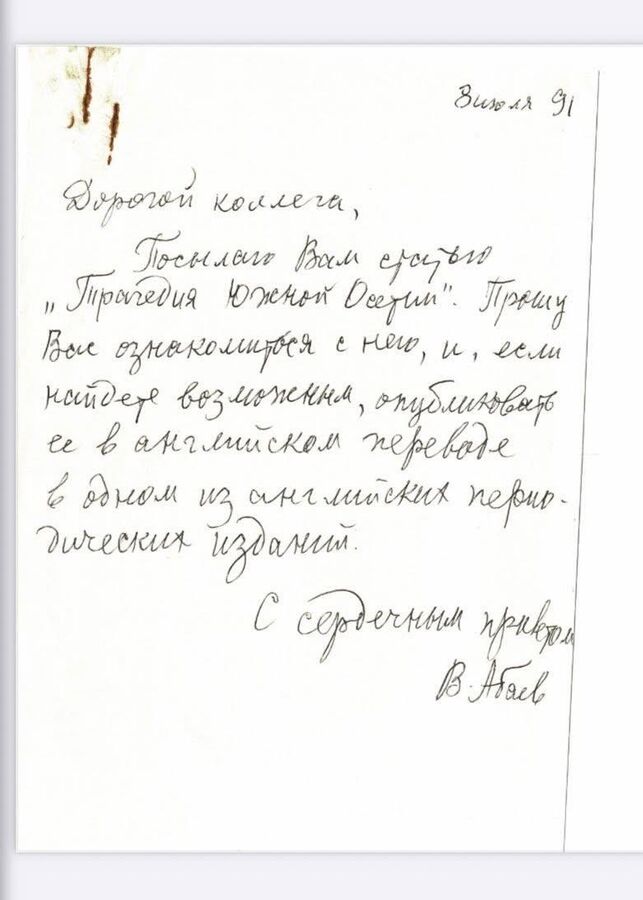 3 июля 91
Дорогой коллега,
Посылаю Вам статью
„Трагедия Южной Осетии". Прошу
Вас ознакомиться с нею, и, если
найдете возможным, опубликовать
ее в английском переводе
в одном из английских перио-
дических изданий.
С сердечным приветом
В. Абаев